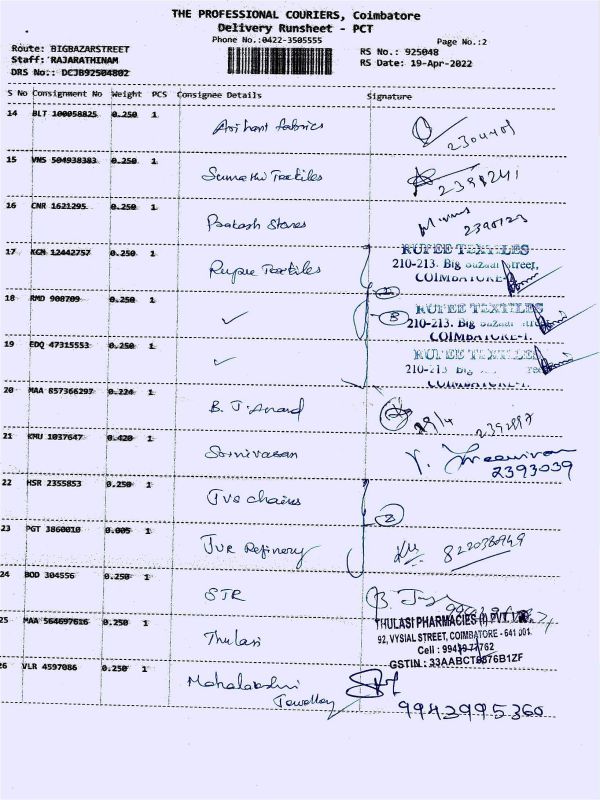 THE PROFESSIONAL COURIERS, Coimbatore
Delivery Runsheet - PCT
Phone No.:0422-3505555
Page No.:2
Route: BIGBAZARSTREET
RS No.: 925048
Staff: RAJARATHINAM
RS Date: 19-Apr-2022
DRS No.: DCJB92504802
S No Consignment No Weight PCS Consignee Details Signature
14 BLT 100058825 0.250 1 Arihant fabrics
15 VNS 504938383 0.250 1 Sumathi Textiles
16 CNR 1621295 0.250 1 Prakash Stores
17 KGM 12442757 0.250 1 Rupee Textiles
RUPEE TEXTILES
210-213, Big Bazaar Street,
COIMBATORE-1.
18 RMD 908709 0.250 1 ✓ 3
RUPEE TEXTILES
210-213, Big Bazaar
COIMBATORE-1.
19 EDQ 47315553 0.250 1 ✓
RUPEE TEXTILES
210-213 Big
COIMBATORE-1.
20 MAA 857366297 0.224 1 B. T. Anand 19/4
21 KMU 1037647 0.420 1 Srinivasan 2393039
22 HSR 2355853 0.250 1 Jve chaires
2
23 PGT 3860010 0.005 1 JVR Refinery
24 BOD 304556 0.250 1 STR
25 MAA 564697616 0.250 1 Thulasi
THULASI PHARMACIES (I) PVT.
92, VYSIAL STREET, COIMBATORE - 641 001.
Cell : 99439 77762
GSTIN : 33AABCT8876B1ZF
26 VLR 4597086 0.250 1 Mahalakshmi
Jewellery
9943995360